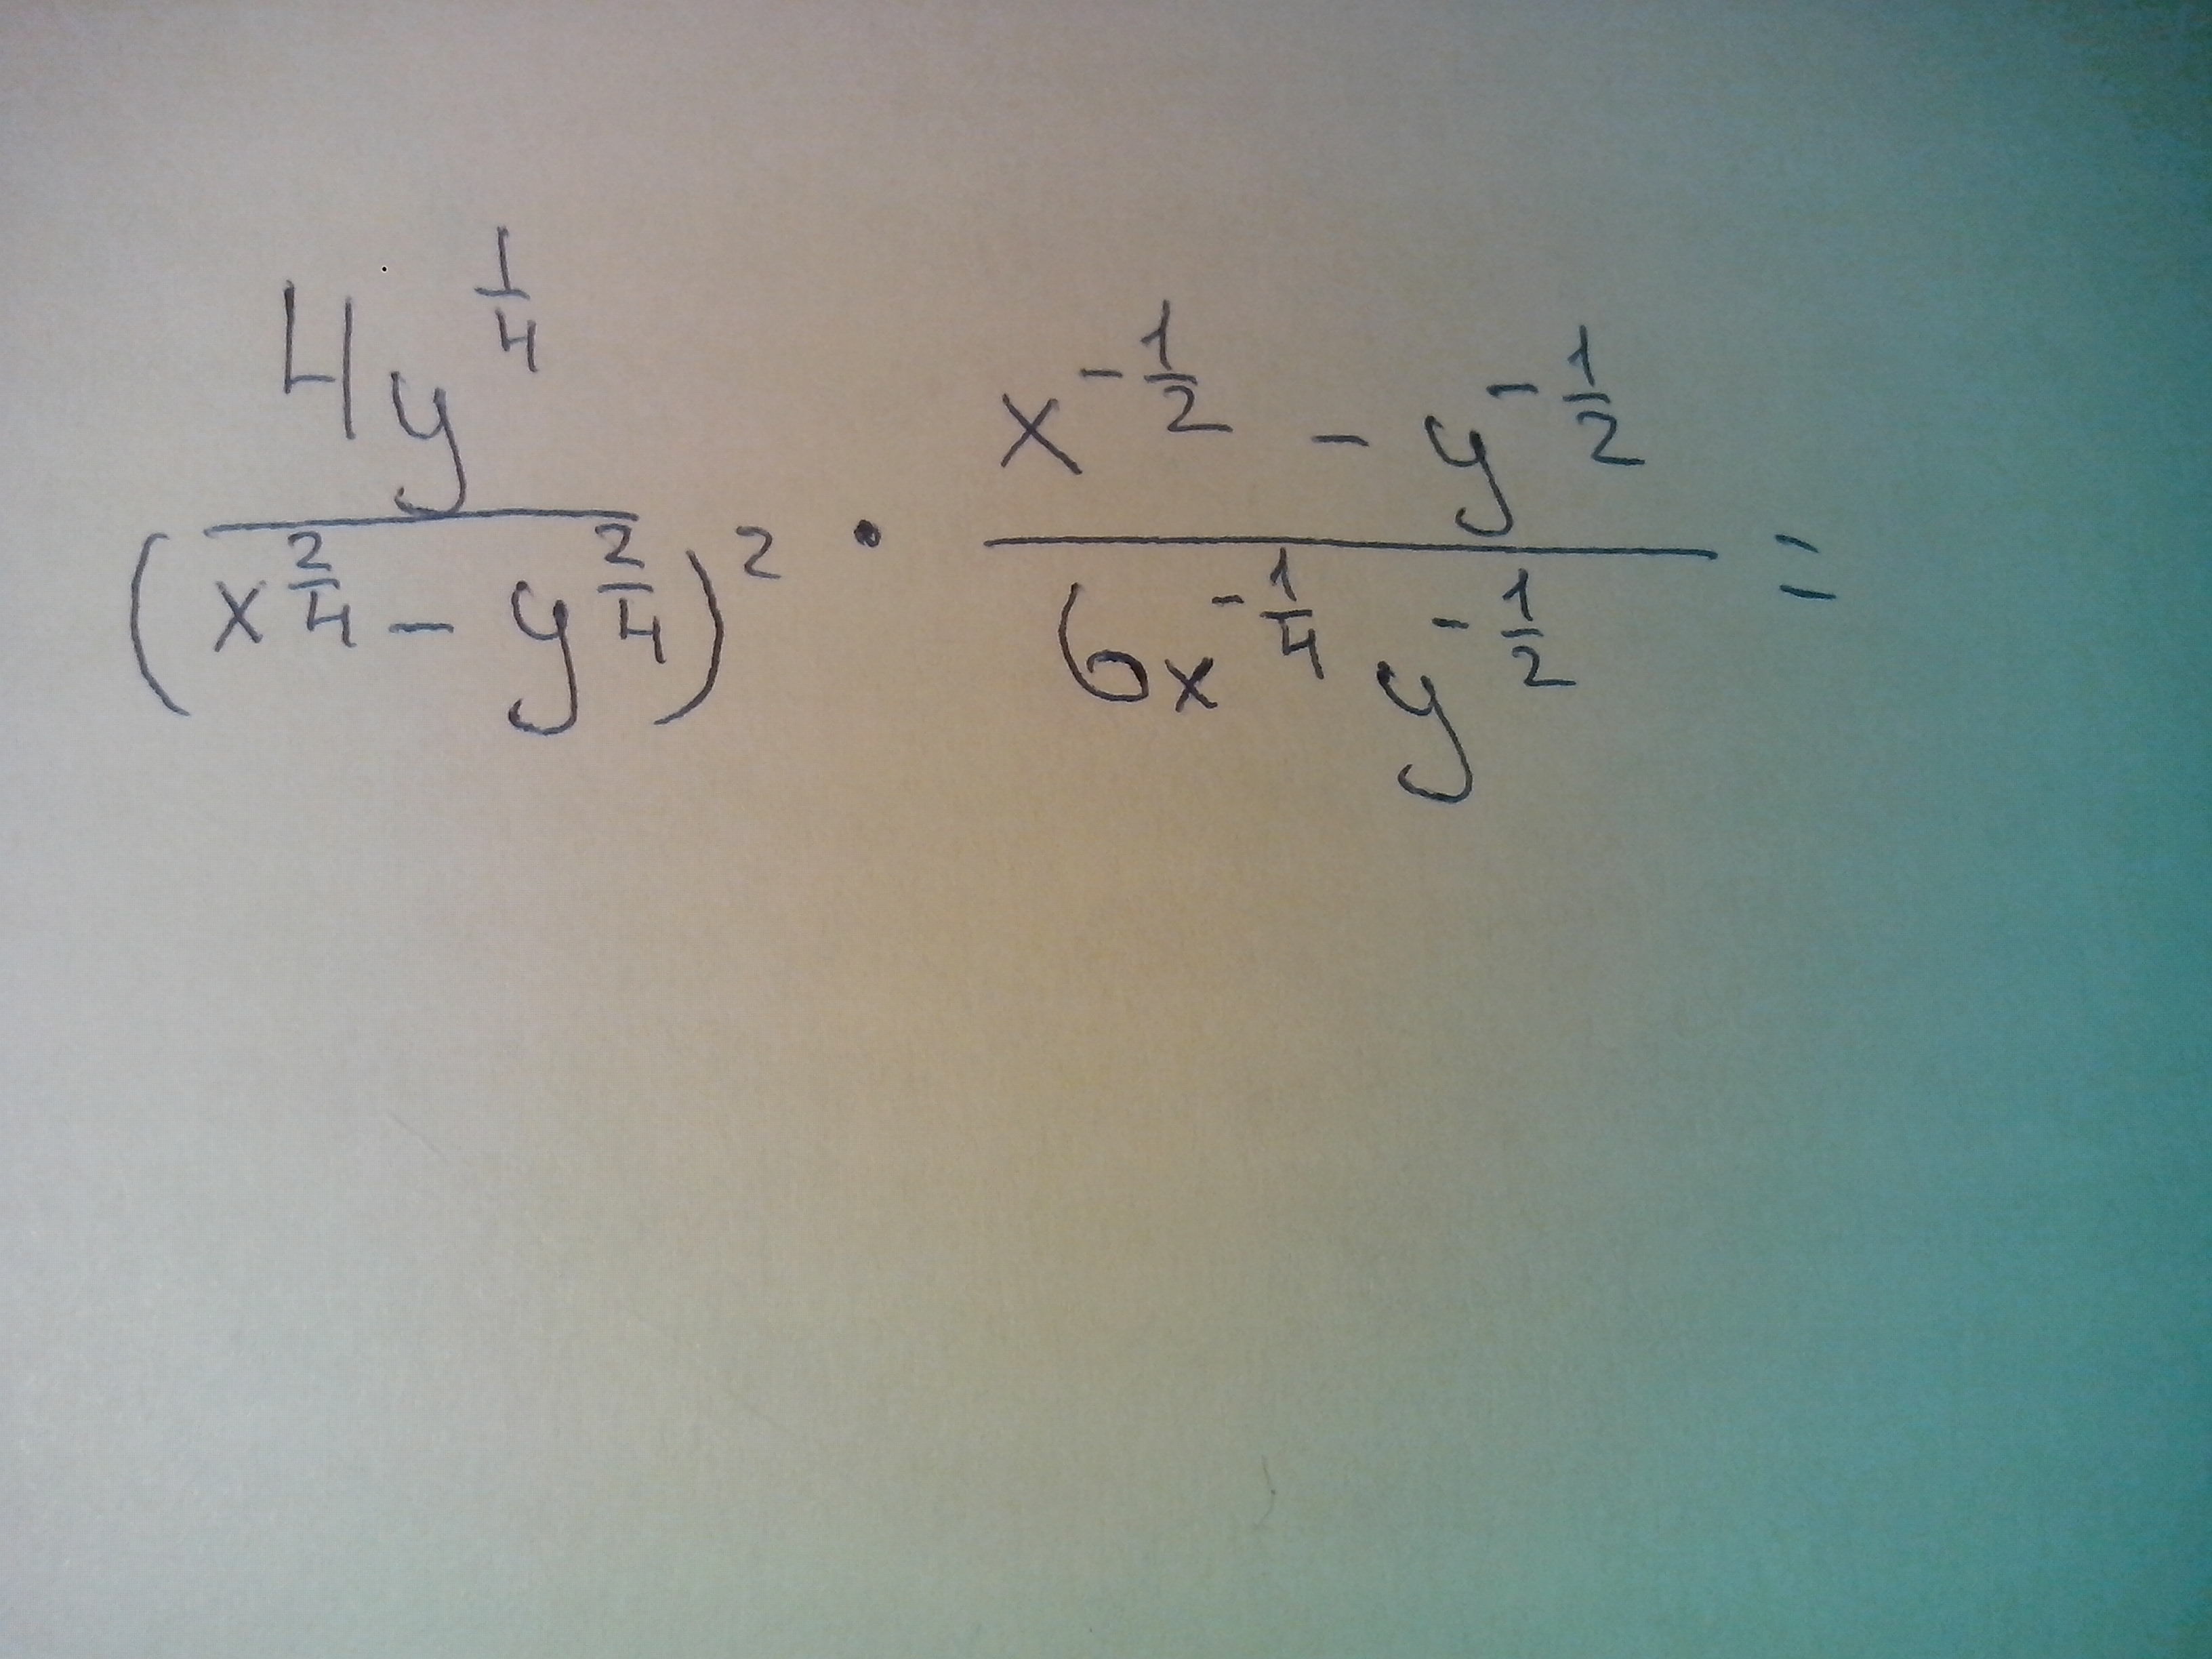 \frac{4y^{\frac{1}{4}}}{(x^{\frac{2}{4}} - y^{\frac{2}{4}})^2} \cdot \frac{x^{-\frac{1}{2}} - y^{-\frac{1}{2}}}{6x^{-\frac{1}{4}} y^{-\frac{1}{2}}} =